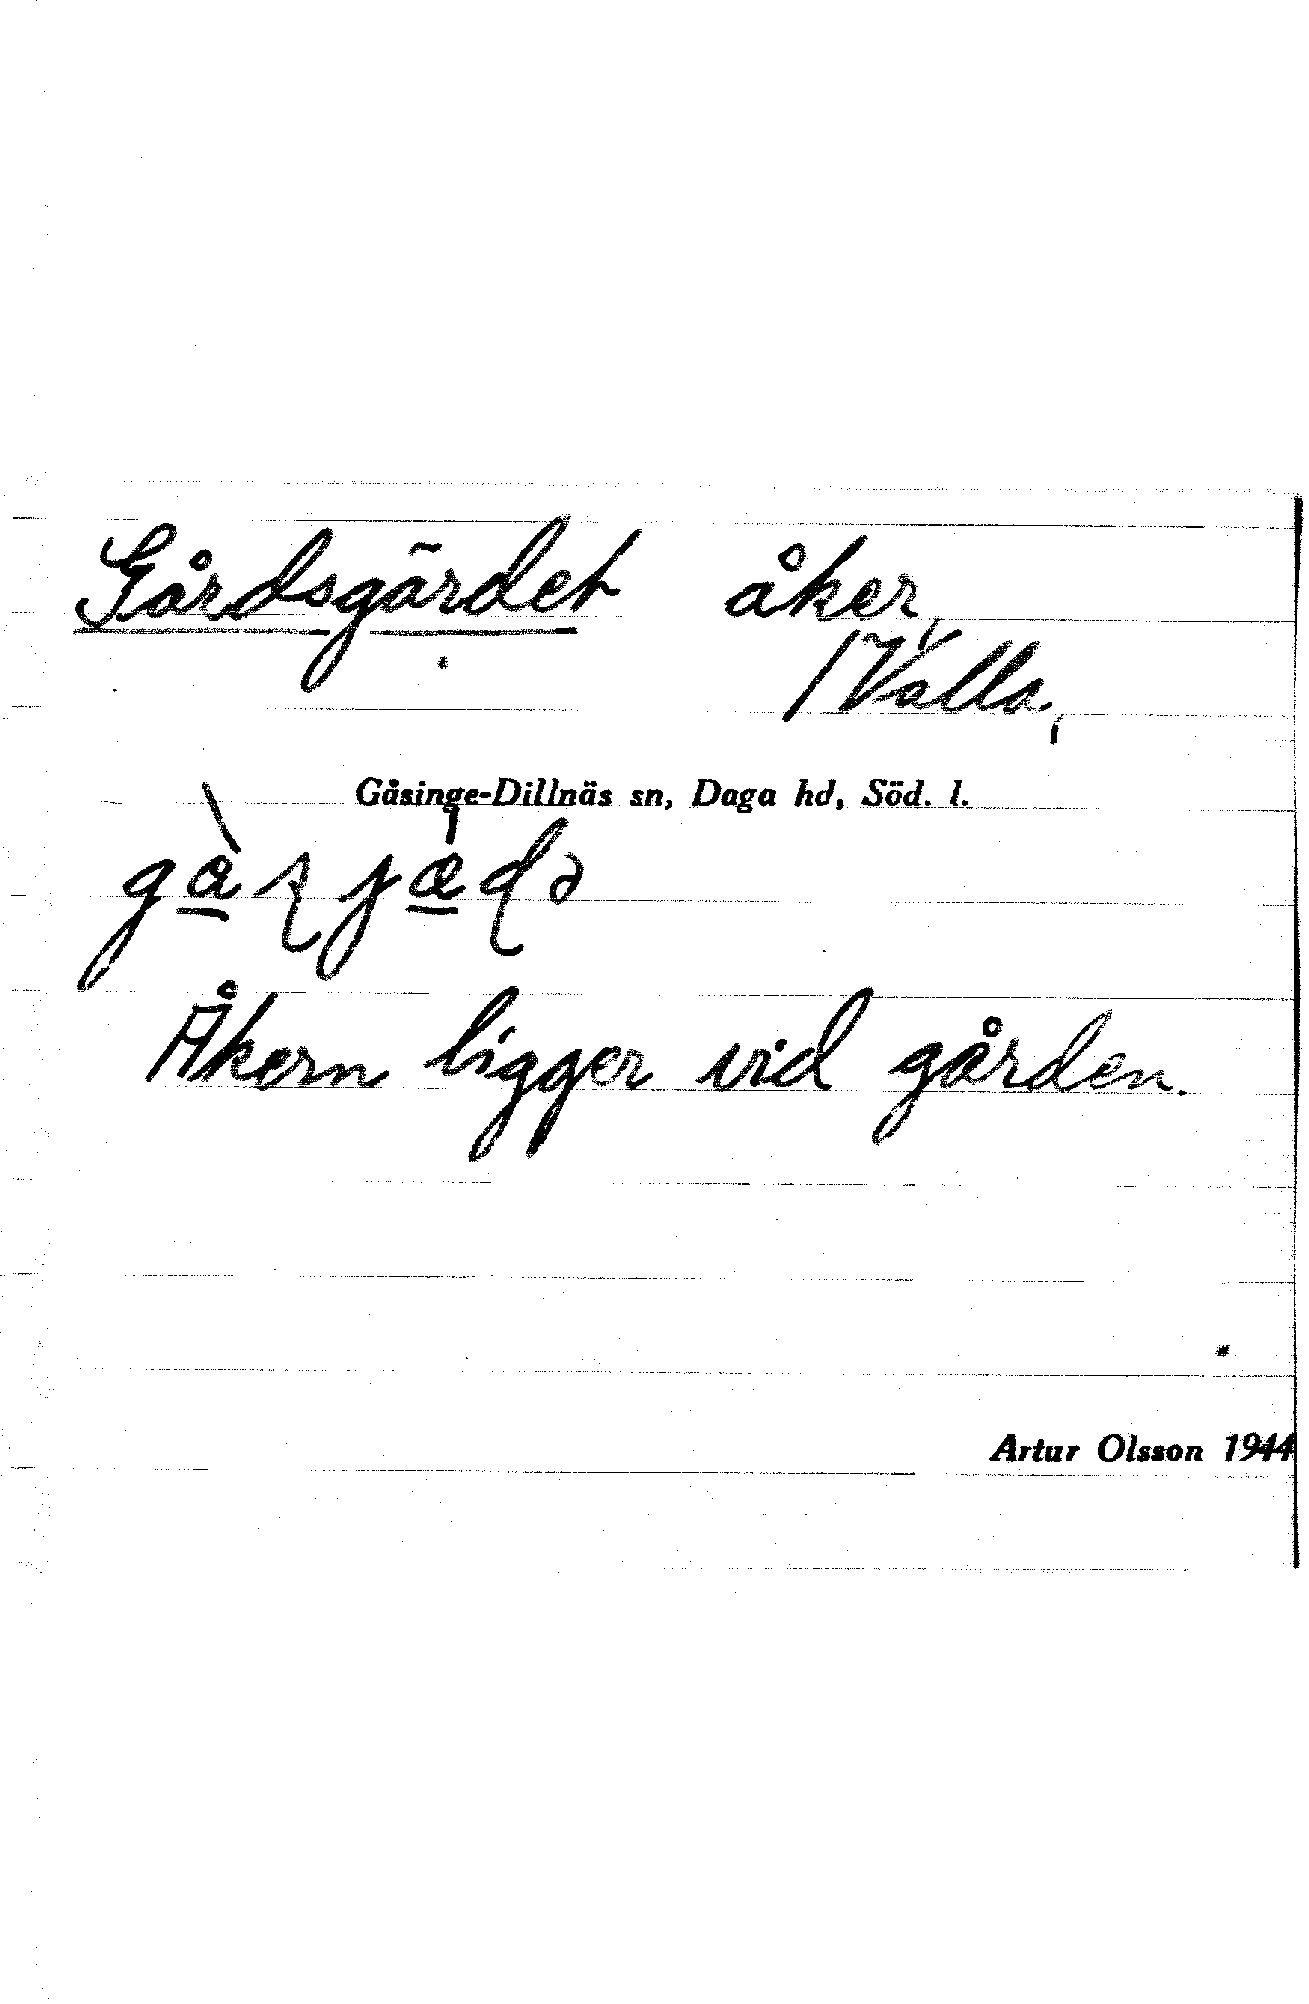 Gårdsgärdet åker,
/Valla,
Gåsinge-Dillnäs sn, Daga hd, Söd. l.
Åkern ligger vid gården.
Artur Olsson 1944